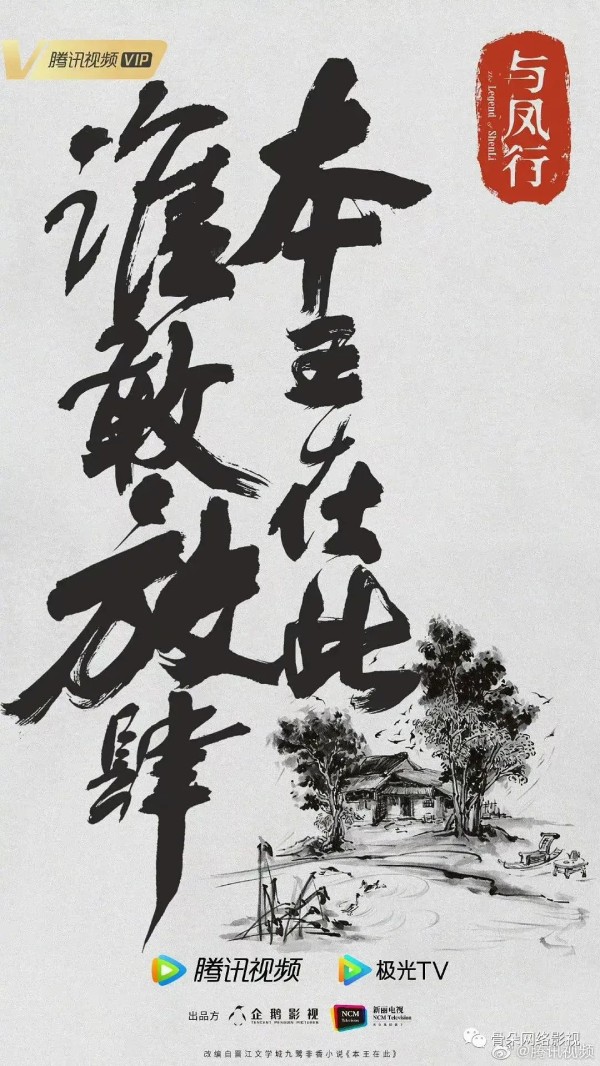 腾讯视频VIP
与凤行
The Legend of ShenLi
本王在此
谁敢放肆
腾讯视频
极光TV
出品方
企鹅影视
TENCENT PENGUIN PICTURES
NCM
Television
新丽电视
NCM Television
改编自晋江文学城九鹭非香小说《本王在此》
骨朵网络影视
@腾讯视频